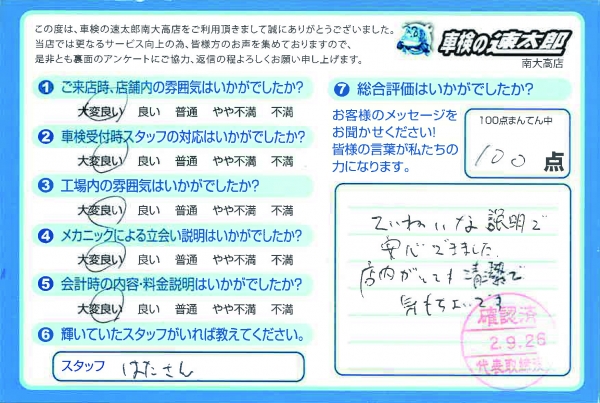 この度は、車検の速太郎南大高店をご利用頂きまして誠にありがとうございました。
当店では更なるサービス向上の為、皆様方のお声を集めておりますので、
是非とも裏面のアンケートにご協力、返信の程よろしくお願い申し上げます。
車検の速太郎
南大高店
1 ご来店時、店舗内の雰囲気はいかがでしたか?
大変良い 良い 普通 やや不満 不満
2 車検受付時スタッフの対応はいかがでしたか?
大変良い 良い 普通 やや不満 不満
3 工場内の雰囲気はいかがでしたか?
大変良い 良い 普通 やや不満 不満
4 メカニックによる立会い説明はいかがでしたか?
大変良い 良い 普通 やや不満 不満
5 会計時の内容・料金説明はいかがでしたか?
大変良い 良い 普通 やや不満 不満
6 輝いていたスタッフがいれば教えてください。
スタッフ はたさん
7 総合評価はいかがでしたか?
お客様のメッセージを
お聞かせください!
皆様の言葉が私たちの
力になります。
100点まんてん中
100 点
ていねいな説明で
安心できました。
店内がとても清潔で
気もちよいです
確認済
2.9.26
代表取締役